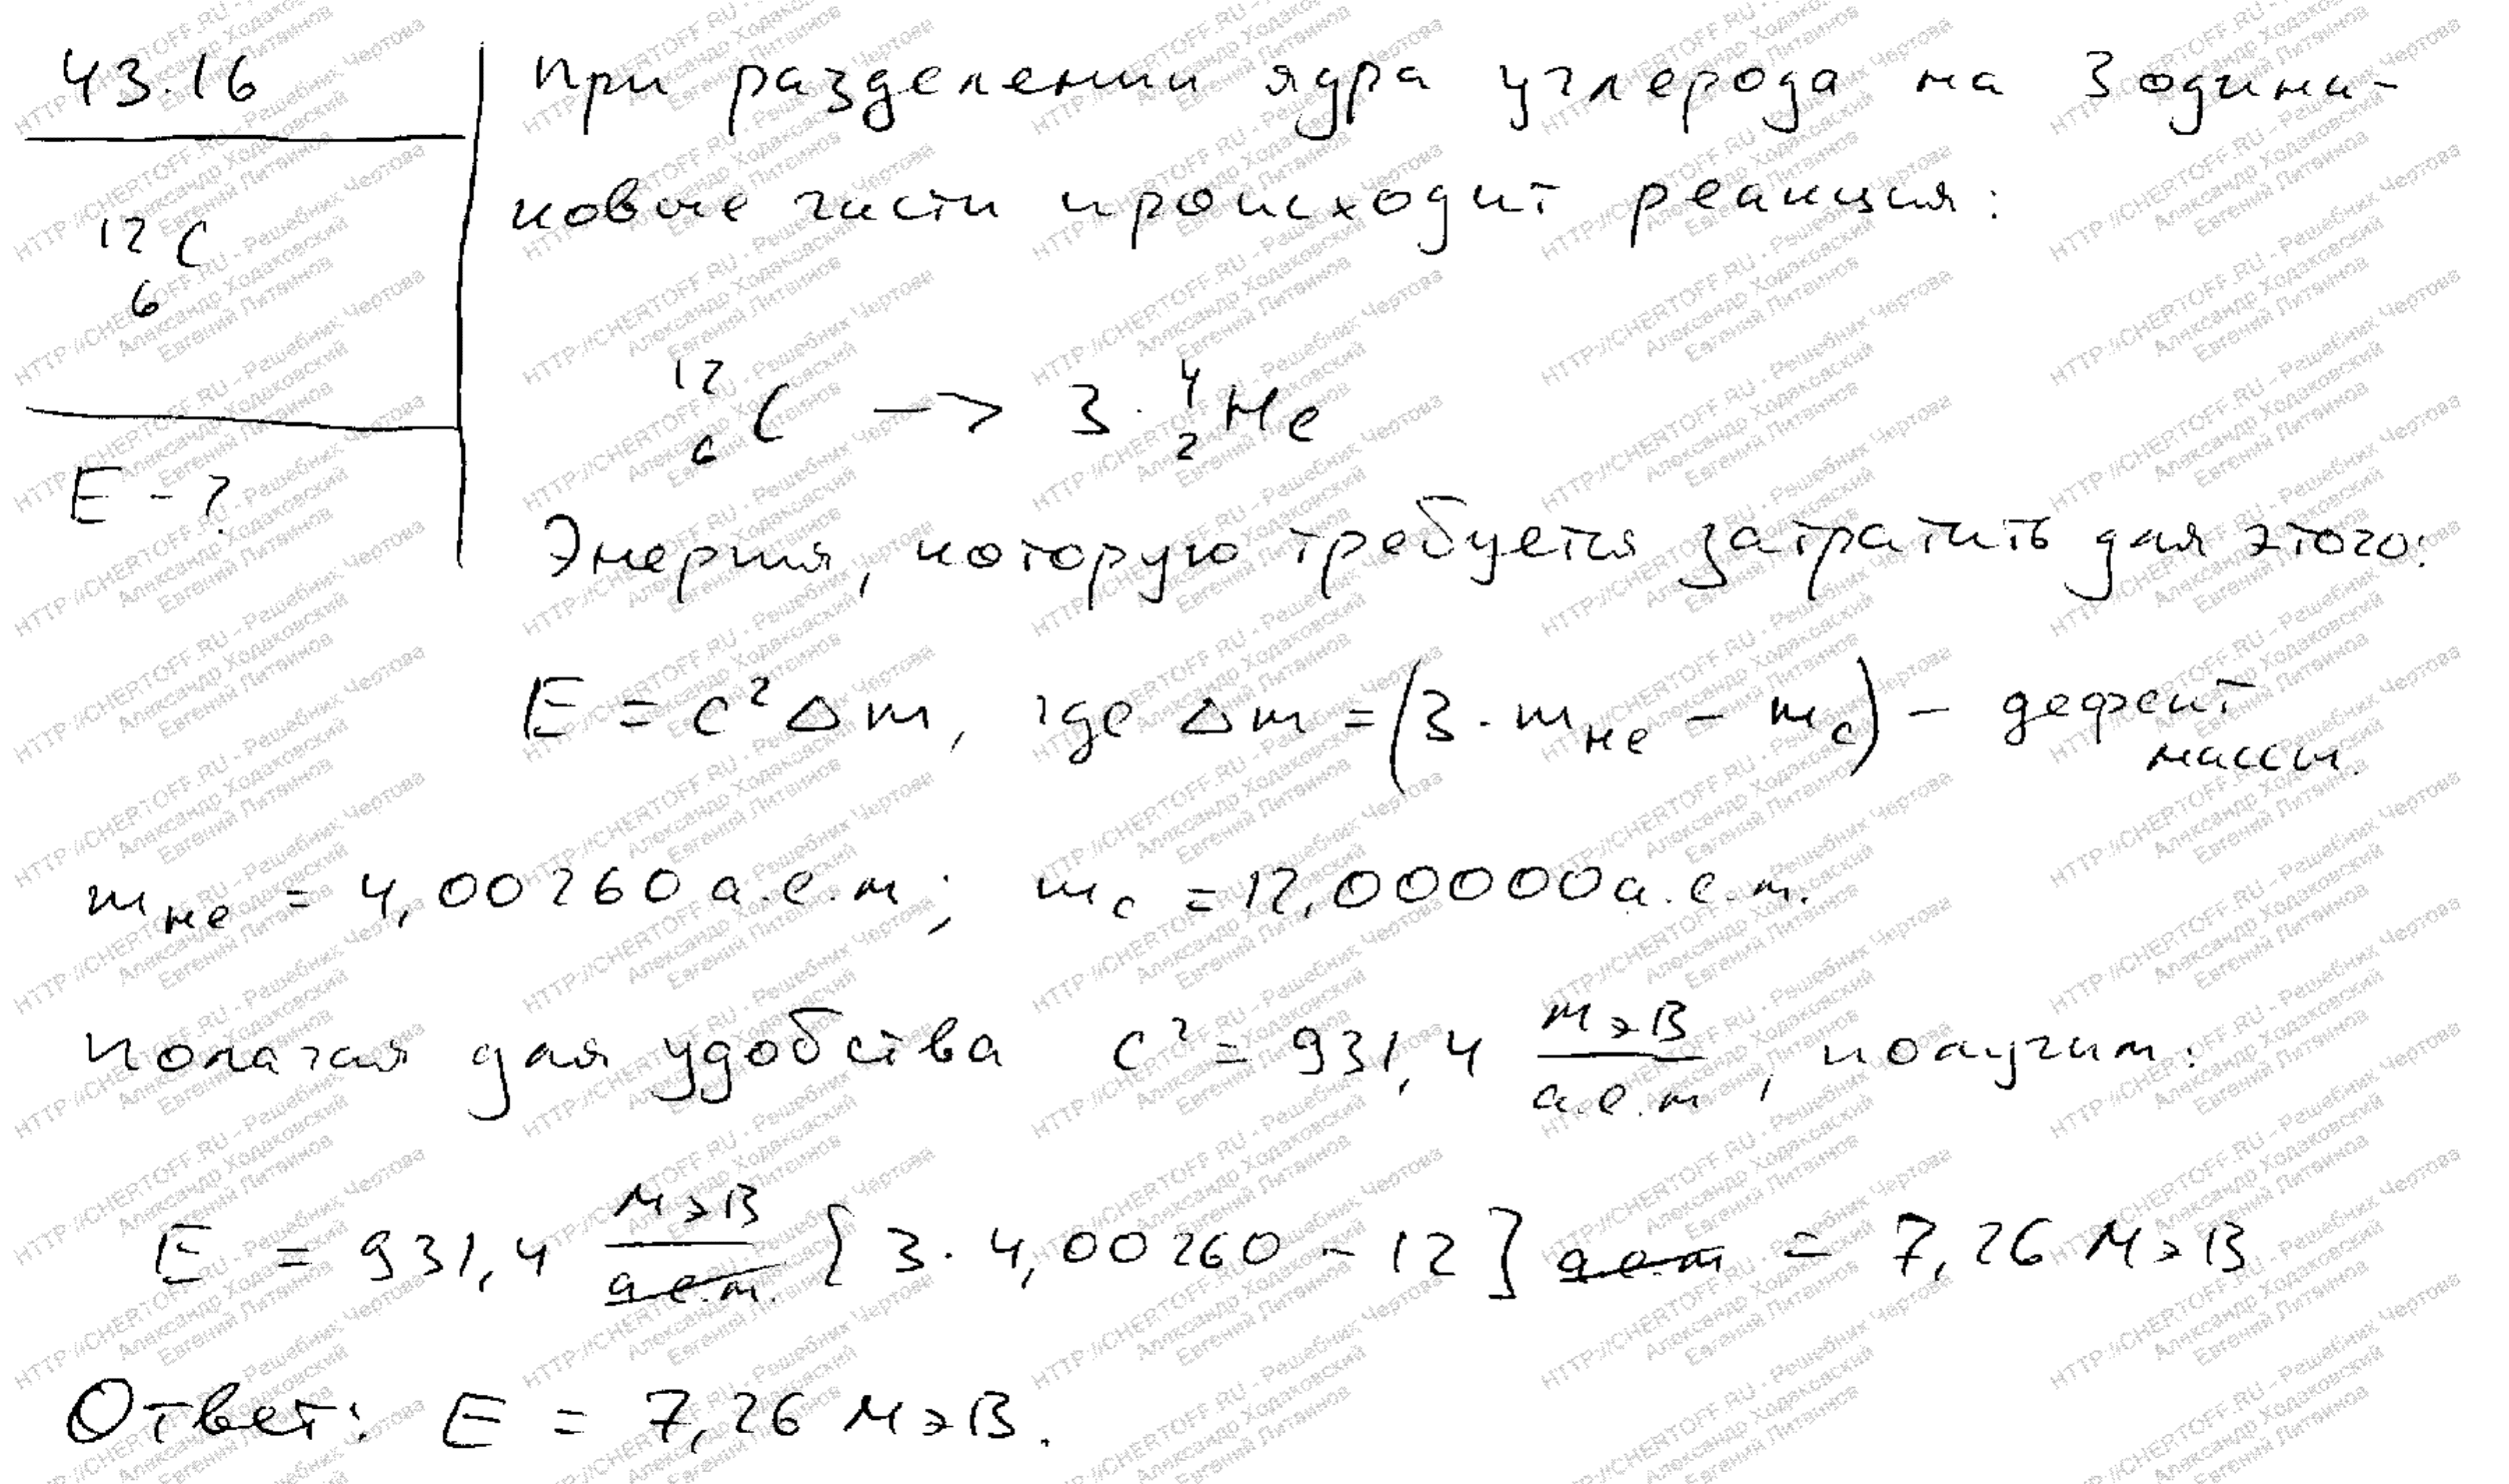 43.16
При разделении ядра углерода на 3 одина-
ковые части происходит реакция:
¹²₆C
¹²₆C —> 3 · ⁴₂He
E - ?
Энергия, которую требуется затратить для этого:
E = c²Δm, где Δm = (3 · m_He − m_C) – дефект
массы.
m_He = 4,00260 а.е.м; m_C = 12,00000 а.е.м.
Полагая для удобства c² = 931,4 МэВ/а.е.м, получим:
E = 931,4 МэВ/а.е.м. {3 · 4,00260 − 12} а.е.м = 7,26 МэВ
Ответ: E = 7,26 МэВ.
HTTP://CHERTOFF.RU - Решебник Чертова
Александр Ходаковский
Евгений Питвинов